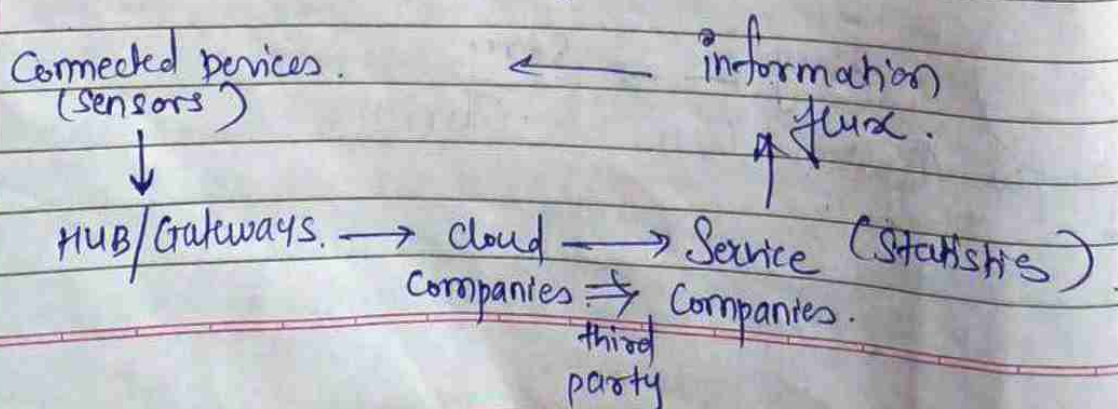 Connected Devices. ← information
(sensors) flux.
↓ ↑
HUB/Gateways. → cloud → Service (Statistics)
Companies ⇒ Companies.
third
party